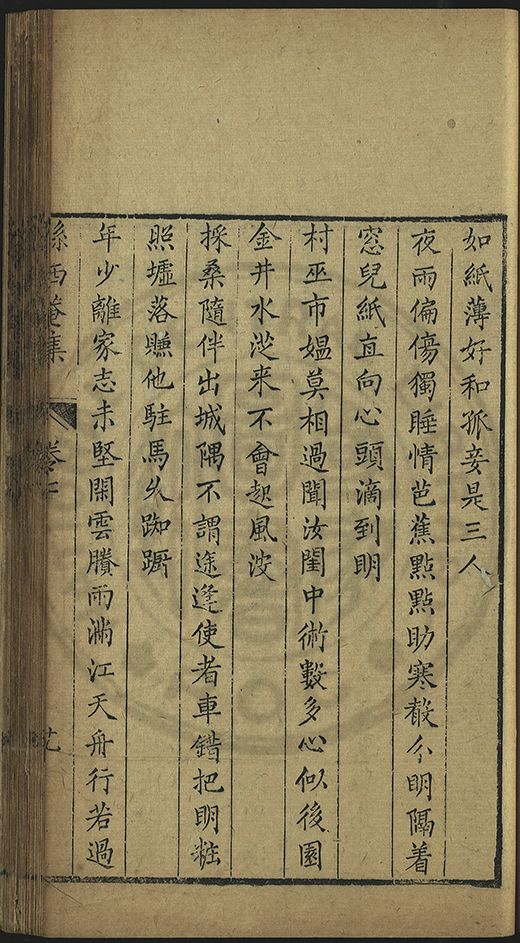 如紙薄好和孤妾是三人
夜雨偏傷獨睡情芭蕉點點助寒聲分明隔着
窓兒紙直向心頭滴到明
村巫市媼莫相過聞汝閨中術數多心似後園
金井水從來不會起風波
採桑隨伴出城隅不謂途逢使者車錯把明粧
照墟落賺他駐馬久踟躕
年少離家志未堅閑雲賸雨滿江天舟行若過
孫西菴集 卷